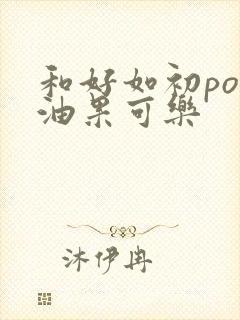 和好如初po
油果可樂
沐伊冉